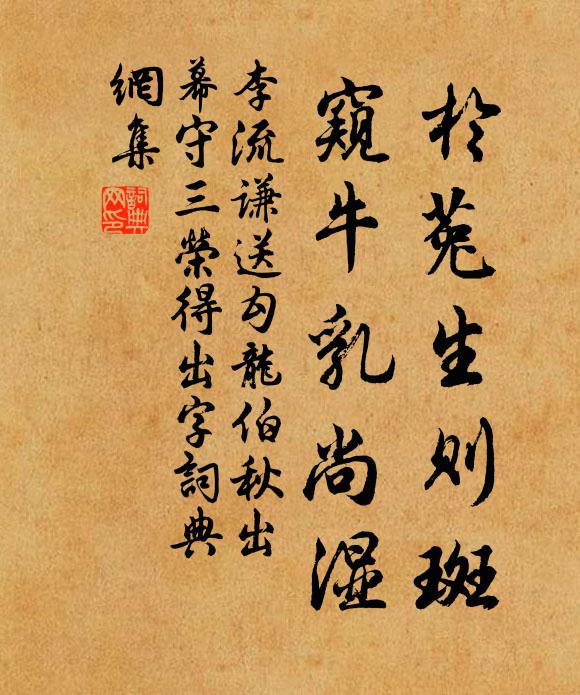 於菟生则斑
窥牛乳尚湿
李流谦送勾龍伯秋出
幕守三榮得出字詞典
網集
詞典
网印